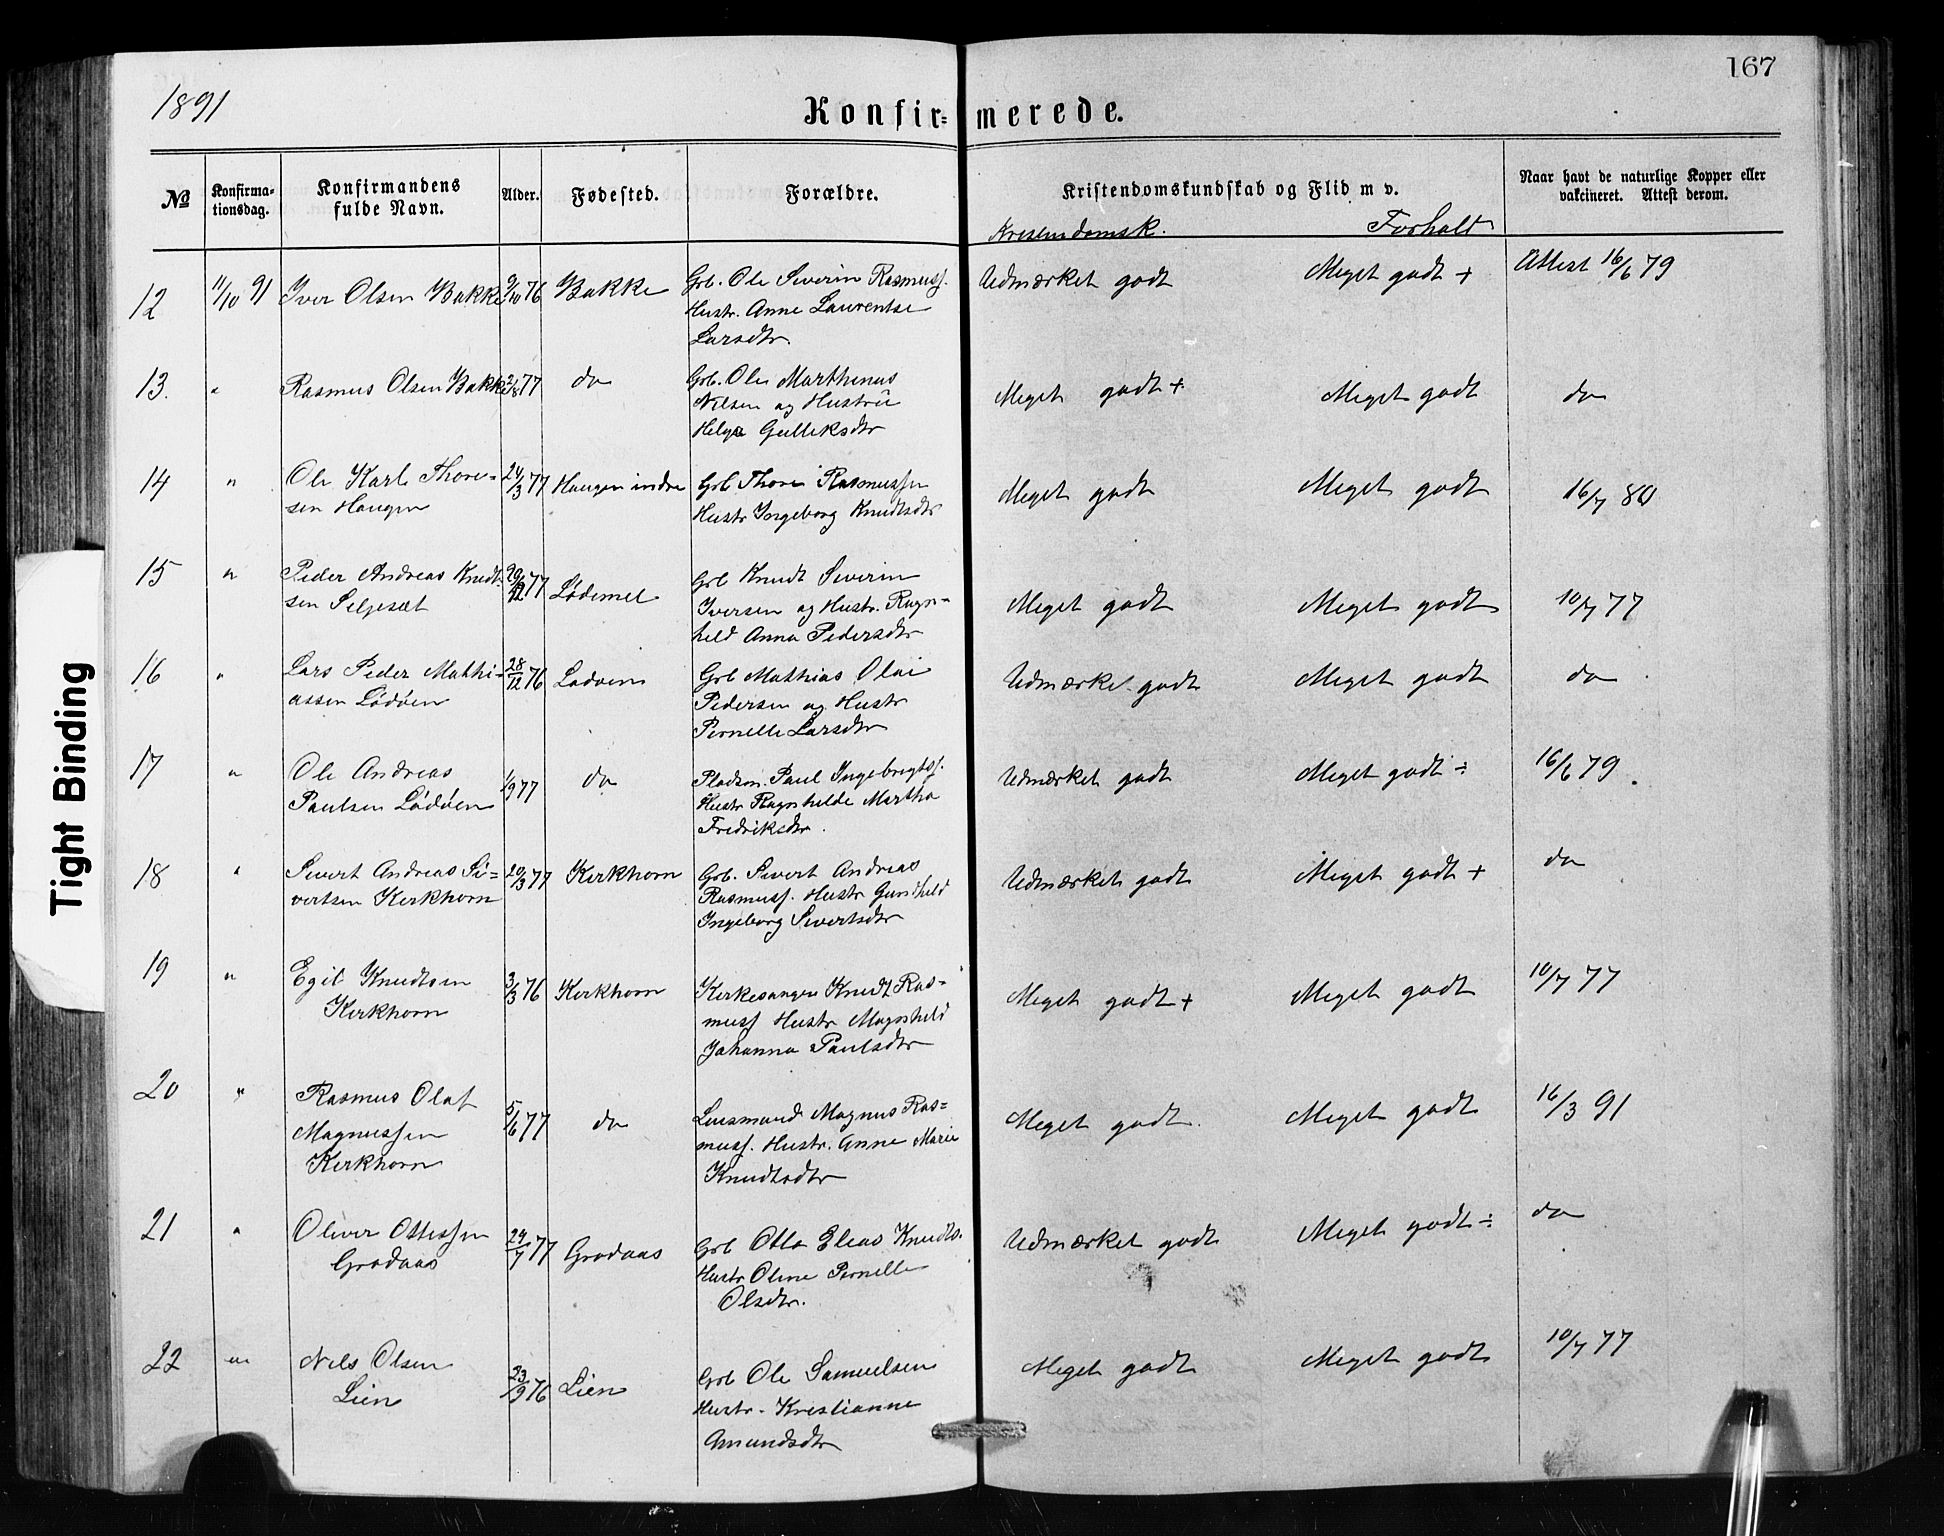 167
1891
Konfir= merede.
№
Konfirma-
tionsdag.
Konfirmandens
fulde Navn.
Alder.
Fødested.
Forældre.
Kristendomskundskab og Flid m v.
Naar havt de naturlige Kopper eller
vakcineret. Attest derom.
Kristendomsk.
Forholt
12 11/10 91 Iver Olsen Bakke 9/10 76 Bakke Grb. Ole Siverin Rasmuss. Udmærket godt Meget godt + Attest 16/6 79
Hustr. Anne Laurentse
Larsdtr.
13. " Rasmus Olsen Bakke 2/8 77 do Grb. Ole Marthinus Meget godt + Meget godt do
Nilsen og Hustru
Helga Gulliksdtr
14 " Ole Karl Thore- 24/3 77 Haugen indre Grb Thore Rasmussen Meget godt Meget godt 16/7 80
sen Haugen Hustr Ingeborg Knudtsdtr
15 " Peder Andreas Knudt- 77 Lødemel Grb Knudt Siverin Meget godt Meget godt 10/7 77
sen Seljesæt Iversen og Hustr. Ragn-
hild Anna Pedersdtr
16 " Lars Peder Mathi- 28/12 76 Lødøen Grb Mathias Olai Udmærket godt Meget godt do
assen Lødøen Pedersen og Hustr
Pernelle Larsdtr
17 " Ole Andreas 1/9 77 do Pladsm. Paul Ingebrigts. Udmærket godt Meget godt ÷ 16/6 79
Paulsen Lødøen Hustr Ragnhilde Martha
Fredriksdtr.
18 " Sivert Andreas Si= 20/3 77 Kirkhorn Grb. Sivert Andreas Udmærket godt Meget godt + do
vertsen Kirkhorn Rasmuss. Hustr Gunhild
Ingeborg Sivertsdtr
19 " Egil Knudtsen 3/3 76 Kirkhorn Kirkesanger Knudt Ras= Meget godt + Meget godt 10/7 77
Kirkhorn muss Hustr Magnhild
Johanna Paulsdtr
20 " Rasmus Olaf 5/6 77 do Lensmand Magnus Ras= Meget godt. Meget godt 16/3 91
Magnussen muss. Hustr. Anne Marie
Kirkhorn Knudtsdtr
21 " Oliver Ottessen 24/7 77 Grodaas Grb Otto Elias Knudts. Udmærket godt Meget godt ÷ do
Grodaas Hustr Oline Pernelle
Olsdtr.
22 " Nils Olsen 23/9 76 Lien Grb Ole Samuelsen Meget godt Meget godt 10/7 77
Lien Hustr. Kristianne
Amundsdtr
Tight Binding